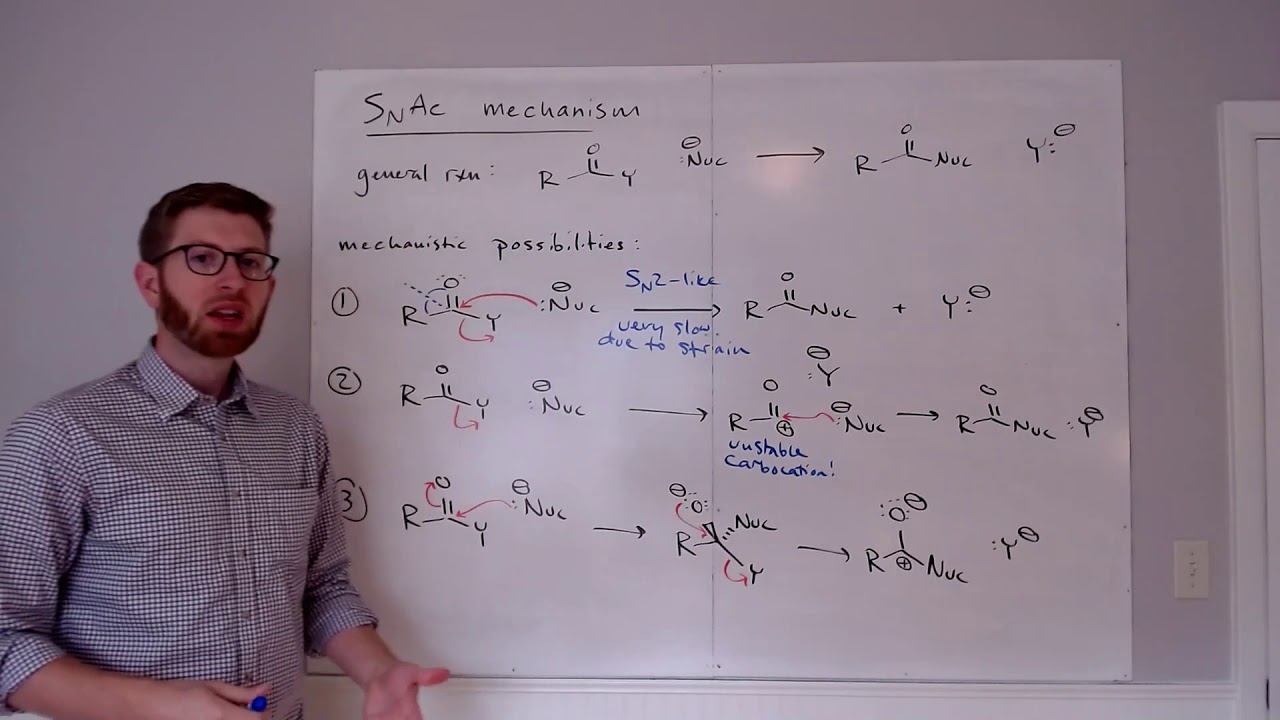 SNAc mechanism
general rxn: R O Y ⊖ :Nuc → R O Nuc Y: ⊖
mechanistic possibilities:
① R O Y ⊖ :Nuc SN2-like → R O Nuc + Y: ⊖
very slow
due to strain
② R O Y ⊖ :Nuc → R O ⊕ ⊖ :Y ⊖ :Nuc → R O Nuc :Y ⊖
unstable
carbocation!
③ R O Y ⊖ :Nuc → R ⊖ :O: Nuc Y → R :O: ⊖ ⊕ Nuc :Y ⊖